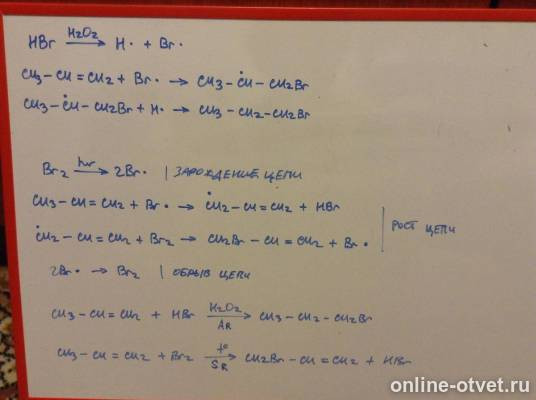 HBr —H2O2→ H· + Br·
CH3-CH=CH2 + Br· → CH3-ĊH-CH2Br
CH3-ĊH-CH2Br + H· → CH3-CH2-CH2Br
Br2 —hν→ 2Br· | ЗАРОЖДЕНИЕ ЦЕПИ
CH3-CH=CH2 + Br· → ĊH2-CH=CH2 + HBr
РОСТ ЦЕПИ
ĊH2-CH=CH2 + Br2 → CH2Br-CH=CH2 + Br·
2Br· → Br2 | ОБРЫВ ЦЕПИ
CH3-CH=CH2 + HBr —H2O2/AR→ CH3-CH2-CH2Br
CH3-CH=CH2 + Br2 —t°/SR→ CH2Br-CH=CH2 + HBr
online-otvet.ru